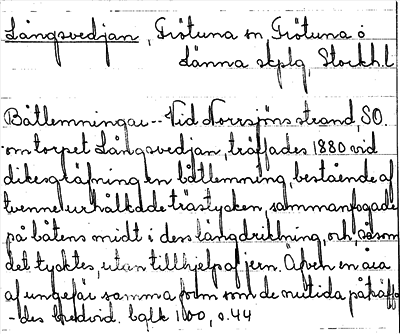 Långsvedjan, Frötuna sn Frötuna o
Länna skplg, Stockh.l
Båtlemningar -- Vid Norrsjöns strand, SO.
om torpet Långsvedjan, träffades 1880 vid
dikesgräfning en båtlemning, bestående af
tvenne urhålkade trästycken, sammanfogade
på båtens midt i dess längdriktning, och, såsom
det tycktes, utan tillhjelp af jern. Äfven en åra
af ungefär samma form som de nutida påträffa-
-des bredvid. balk 1:100, s. 44